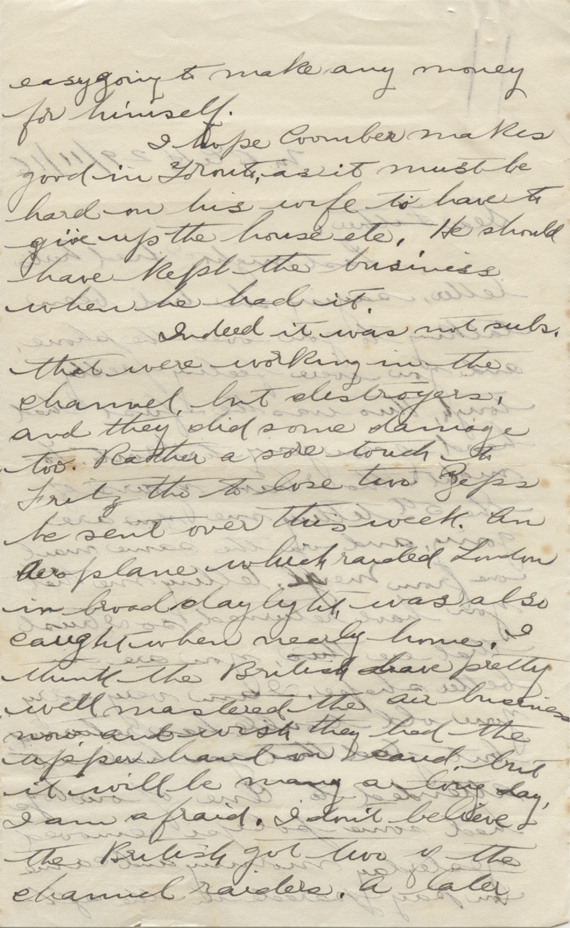 easygoing to make any money
for himself.
I hope Coomber makes
good in Toronto, as it must be
hard on his wife to have to
give up the house etc. He should
have kept the business
when he had it.
Indeed it was not subs.
that were working in the
channel, but destroyers,
and they did some damage
too. Rather a sore touch to
Fritz tho to lose two Zeps
he sent over this week. An
aeroplane which raided London
in broad daylight, was also
caught when nearly home. I
think the British have pretty
well mastered the air business
now and wish they had the
upper hand on land, but
it will be many a long day,
I am afraid. I don't believe
the British got two of the
channel raiders. A later